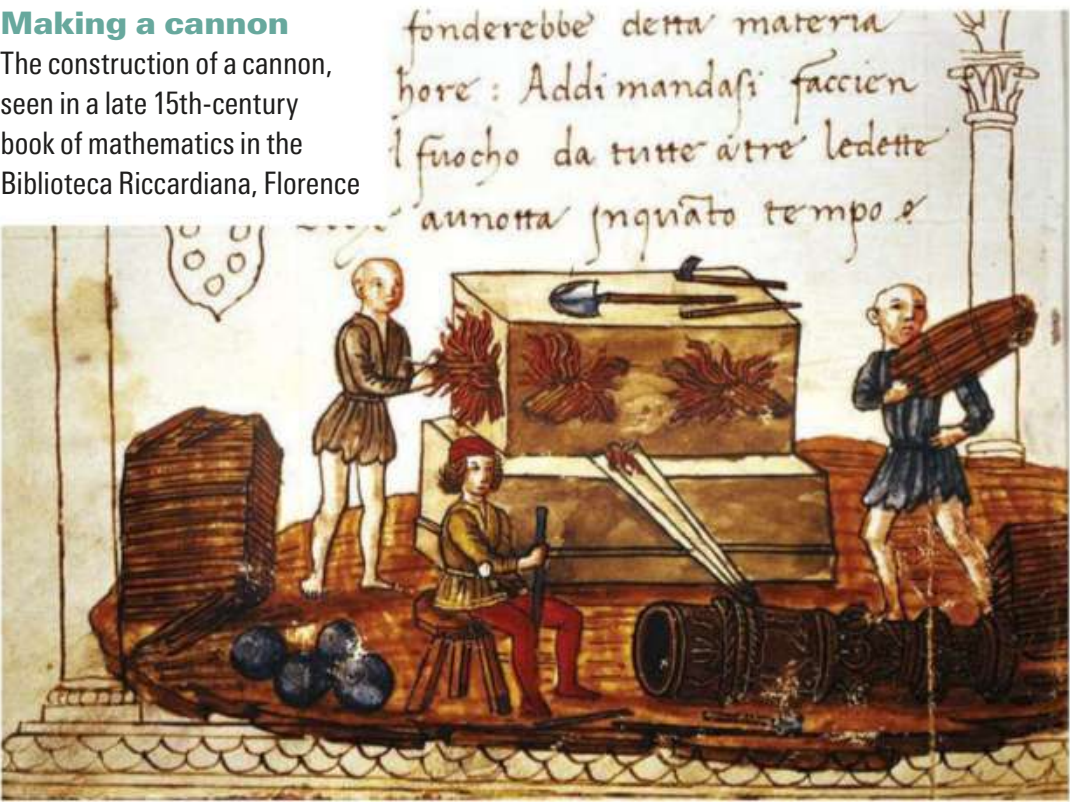 Making a cannon
The construction of a cannon,
seen in a late 15th-century
book of mathematics in the
Biblioteca Riccardiana, Florence
fonderebbe detta materia
hore : Addimandasi faccien
l fuocho da tutte atre ledette
aunotta inquāto tempo e